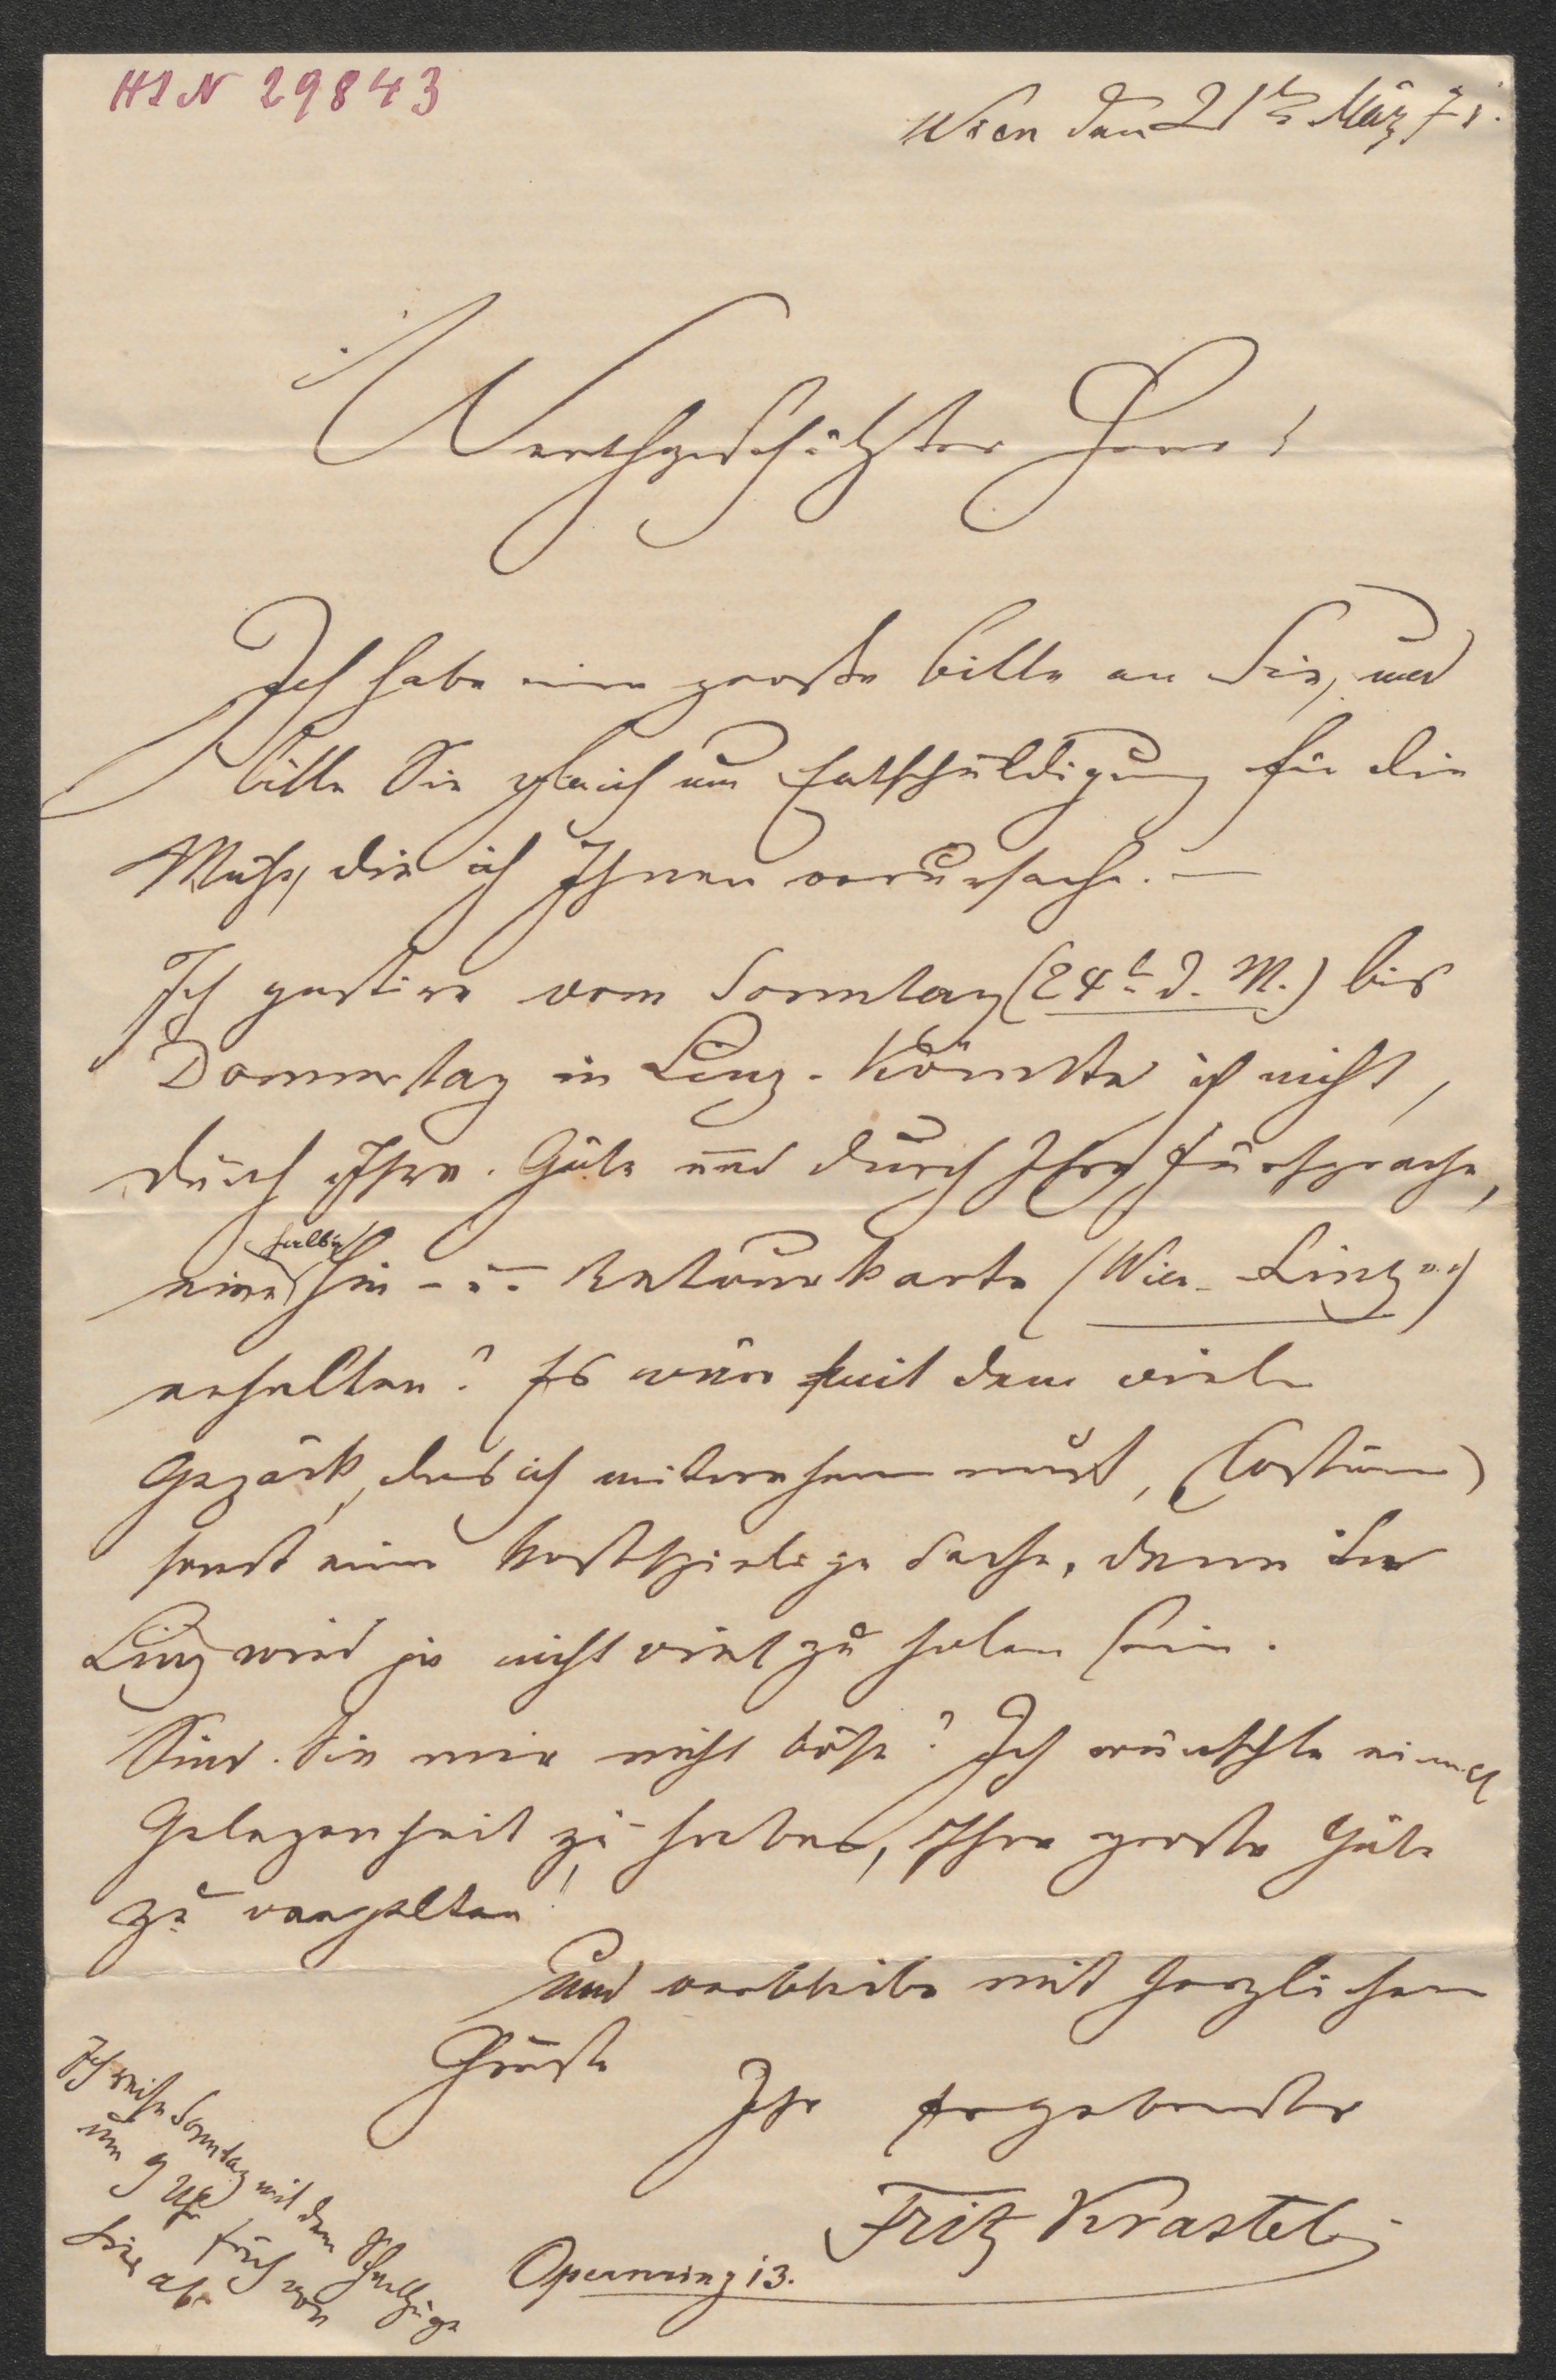 HIN 29843
Wien den 21t März 71.
Werthgeschätzter Herr!
Ich habe eine große Bitte an Sie, und
bitte Sie gleich um Entschuldigung für die
Mühe, die ich Ihnen verursache. —
Ich gastire vom Sonntag (24t d. M.) bis
Donnerstag in Linz. Könnte ich nicht,
durch Ihre Güte und durch Ihre Fürsprache,
eine halbe Hin- u. Retourkarte (Wien-Linz)
erhalten? Es wäre mit dem viele
Gepäck, das ich mitnehmen muß, (Costüme)
sonst eine kostspielige Sache, denn in
Linz wird ja nicht viel zu holen sein.
Sind Sie mir nicht böse? Ich wünschte einmal
Gelegenheit zu haben, Ihre große Güte
zu vergelten!
Und verbleibe mit herzlichem
Gruße
Ihr ergebenster
Fritz Krastel
Opernring 13.
Ich reise Sonntag mit dem Schnellzuge
um 9 Uhr früh von
hier ab.